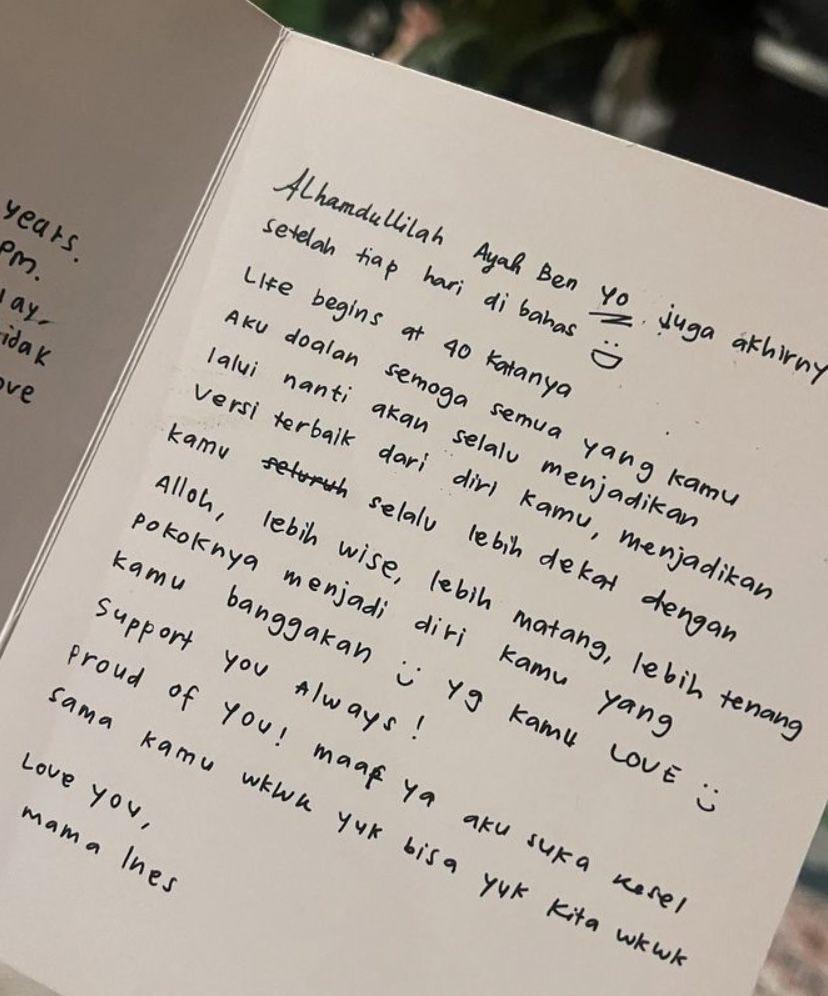 years.
pm.
lay,
idak
ove
ALhamdullilah Ayah Ben 40 juga akhirny
setelah tiap hari di bahas :D
Life begins at 40 katanya
Aku doalan semoga semua yang kamu
lalui nanti akan selalu menjadikan
versi terbaik dari diri kamu, menjadikan
kamu selalu lebih dekat dengan
Alloh, lebih wise, lebih matang, lebih tenang
pokoknya menjadi diri kamu yang
kamu banggakan :) yg kamu LOVE :)
Support you Always!
proud of you! maaf ya aku suka kesel
sama kamu wkwk yuk bisa yuk kita wkwk
Love you,
mama Ines